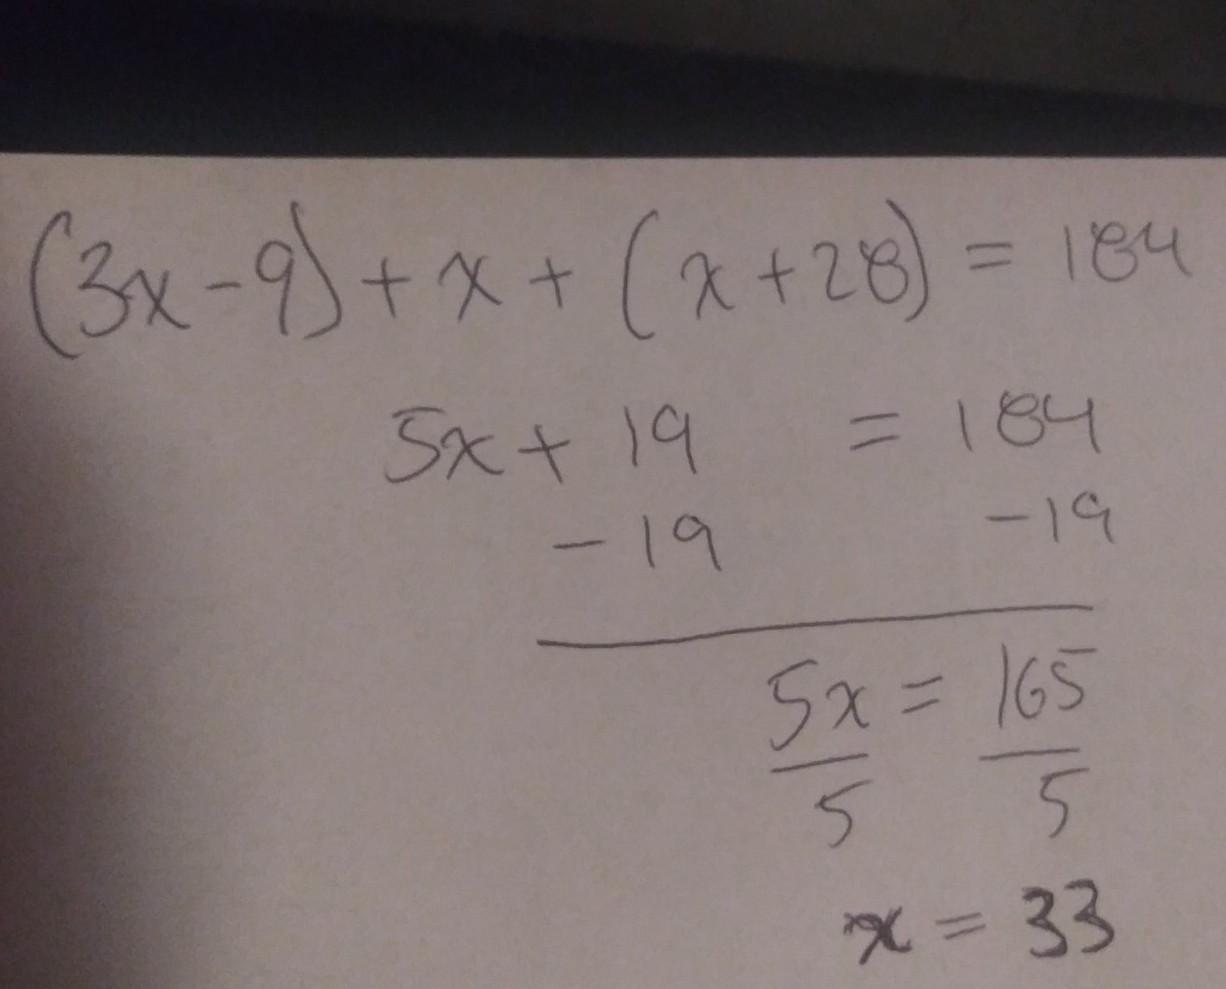 (3x-9)+x+(x+28)=184
5x+19=184
-19 -19
5x=165
5 5
x=33